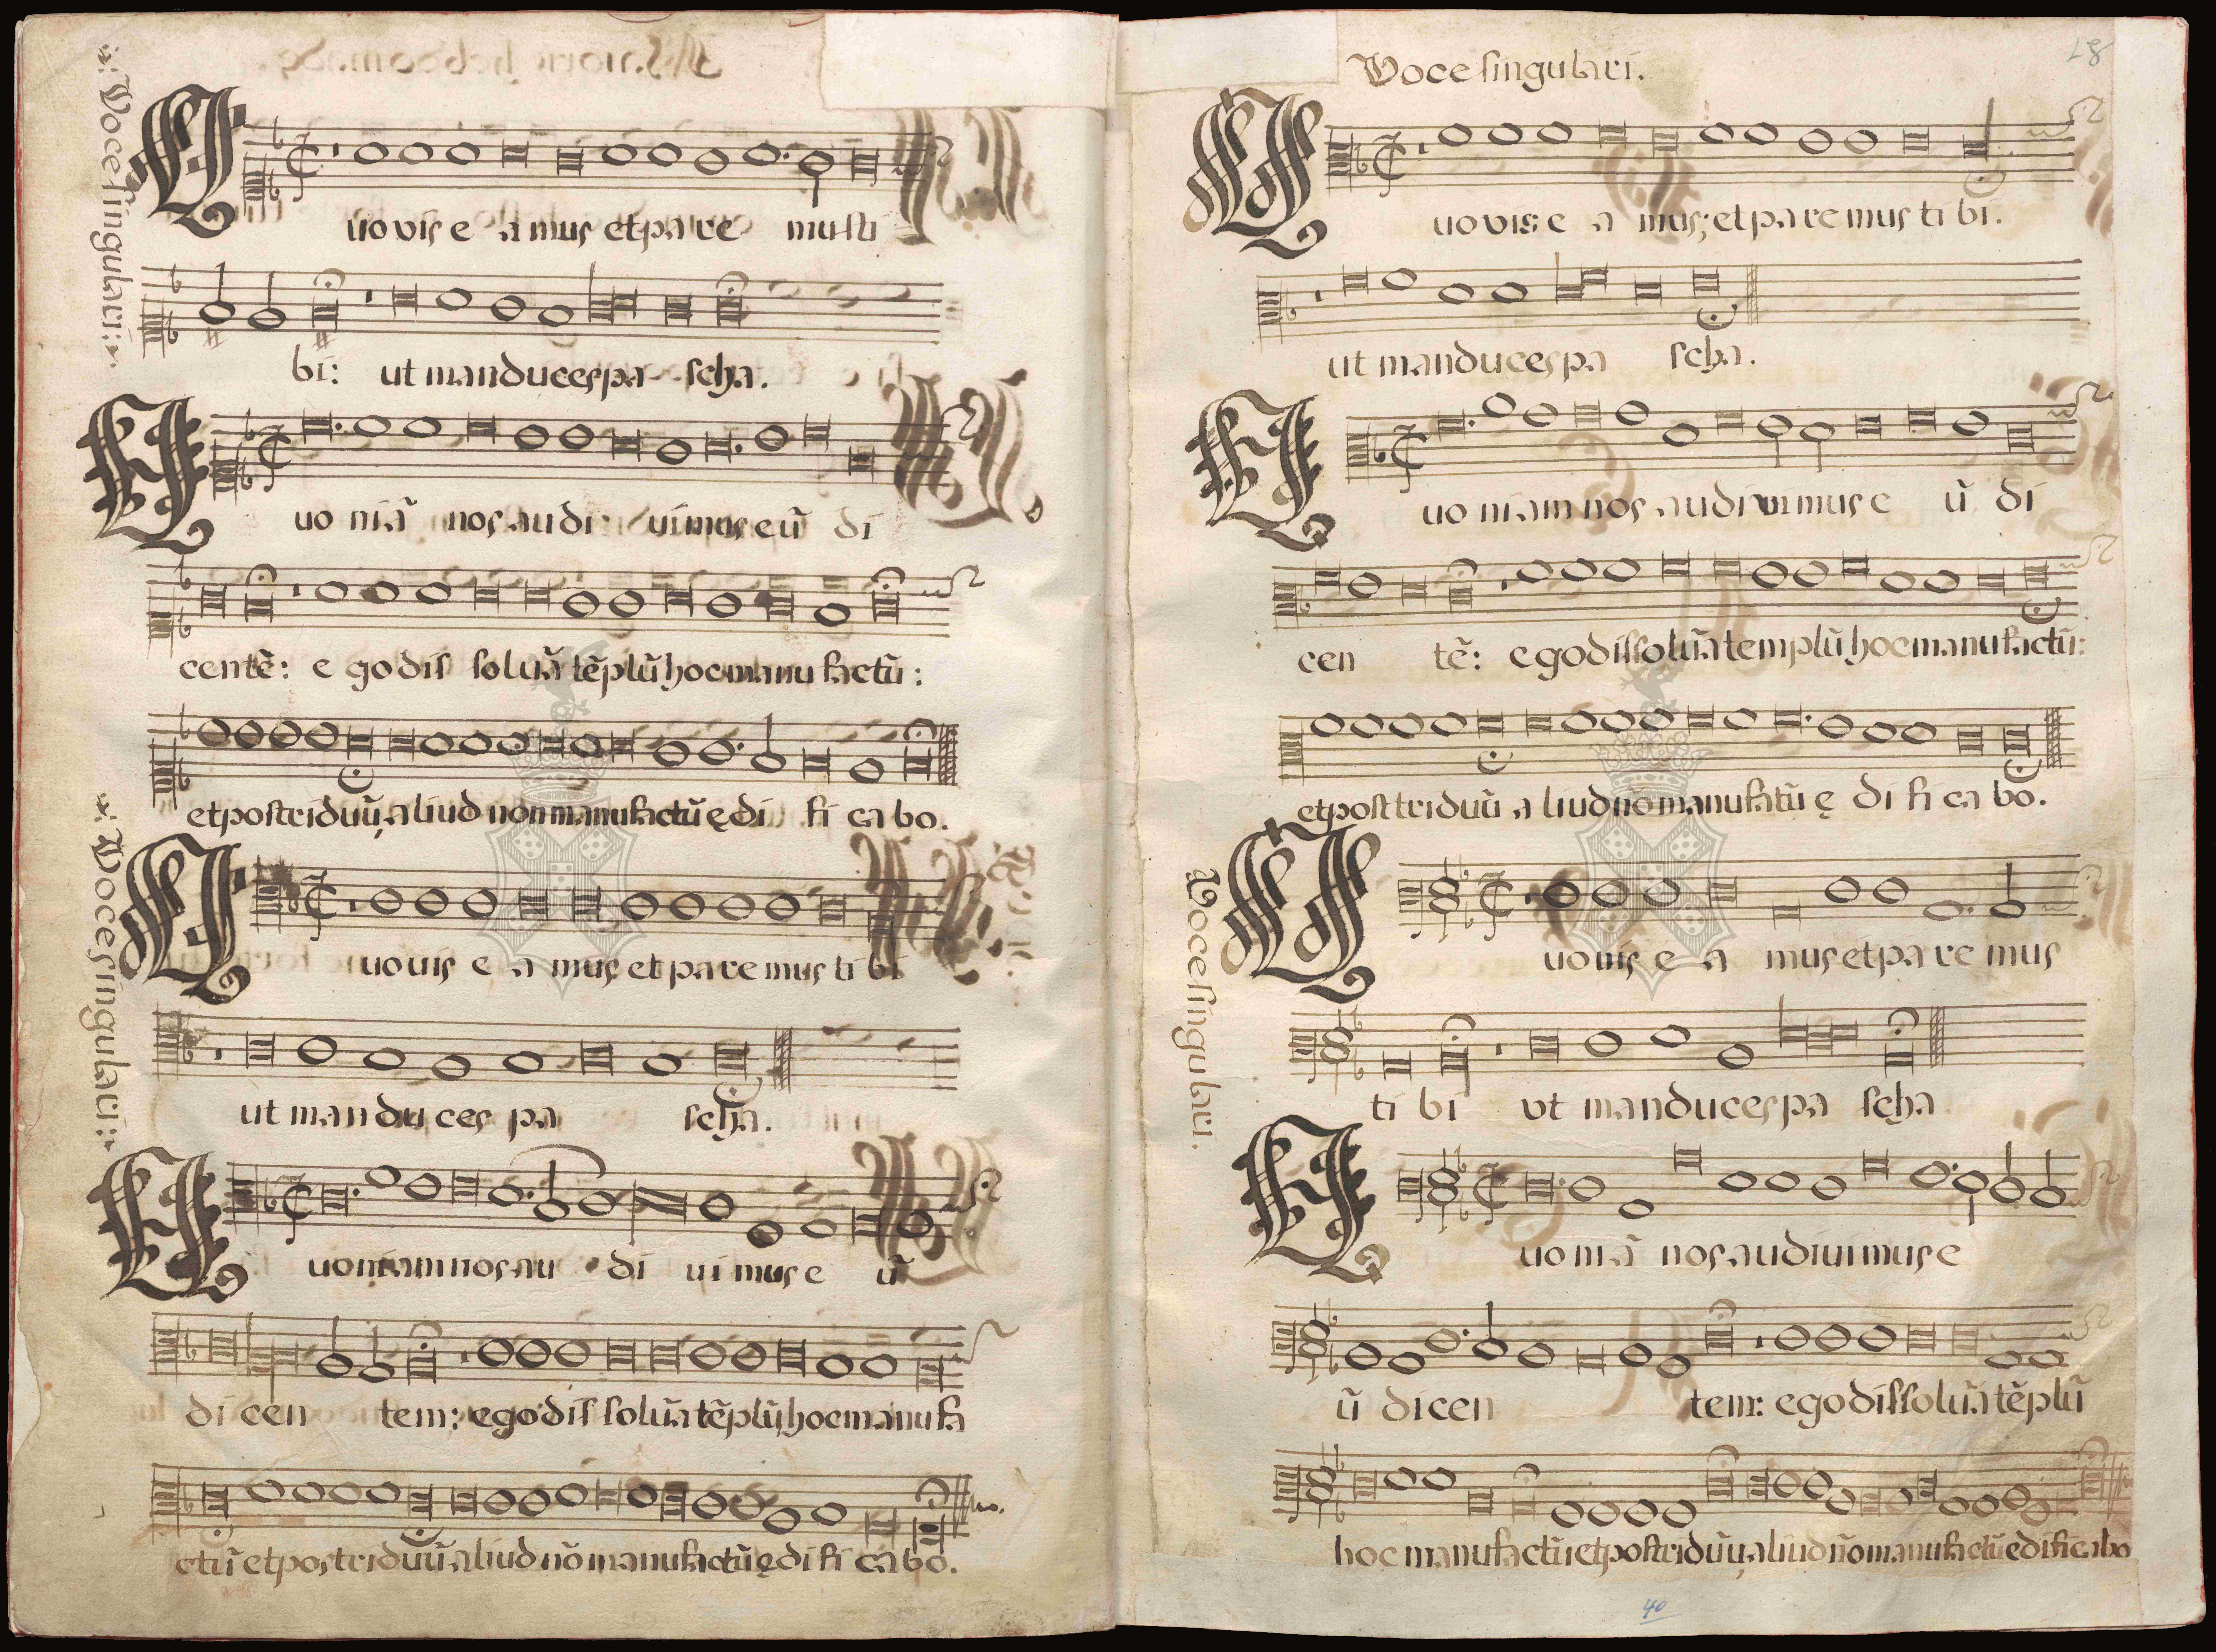 Voce singulari:
uo vis e a mus et pa re mus ti
bi: ut manduces pa scha.
uo niã nos audi uimus eũ di
centẽ: e go dis soluã tẽplũ hoc manu factũ:
et post triduũ, aliud non manufactũ ędi fi ca bo.
Voce singulari:
uo uis e a mus et pa re mus ti bi
ut mandu ces pa scha.
uoniam nos au di ui mus e ũ
di cen tem: ego dis soluã tẽplũ, hoc manu fa
ctũ et pos triduũ aliud nõ manufactũ ędi fi ca bo.
Voce singulari.
87
uo vis e a mus; et pa re mus ti bi.
ut manduces pa scha.
uo niam nos audi uimus e ũ di
cen tẽ: e go dissoluã templũ hoc manu factũ:
et post triduũ a liud nõ manufatũ ę di fi ca bo.
Voce singulari.
uo uis e a mus et pa re mus
ti bi vt manduces pa scha
uo niã nos audiui mus e
ũ di cen tem: ego dissoluã tẽplũ
hoc manufactũ et post triduũ, aliud nõ manufactũ edificabo
40